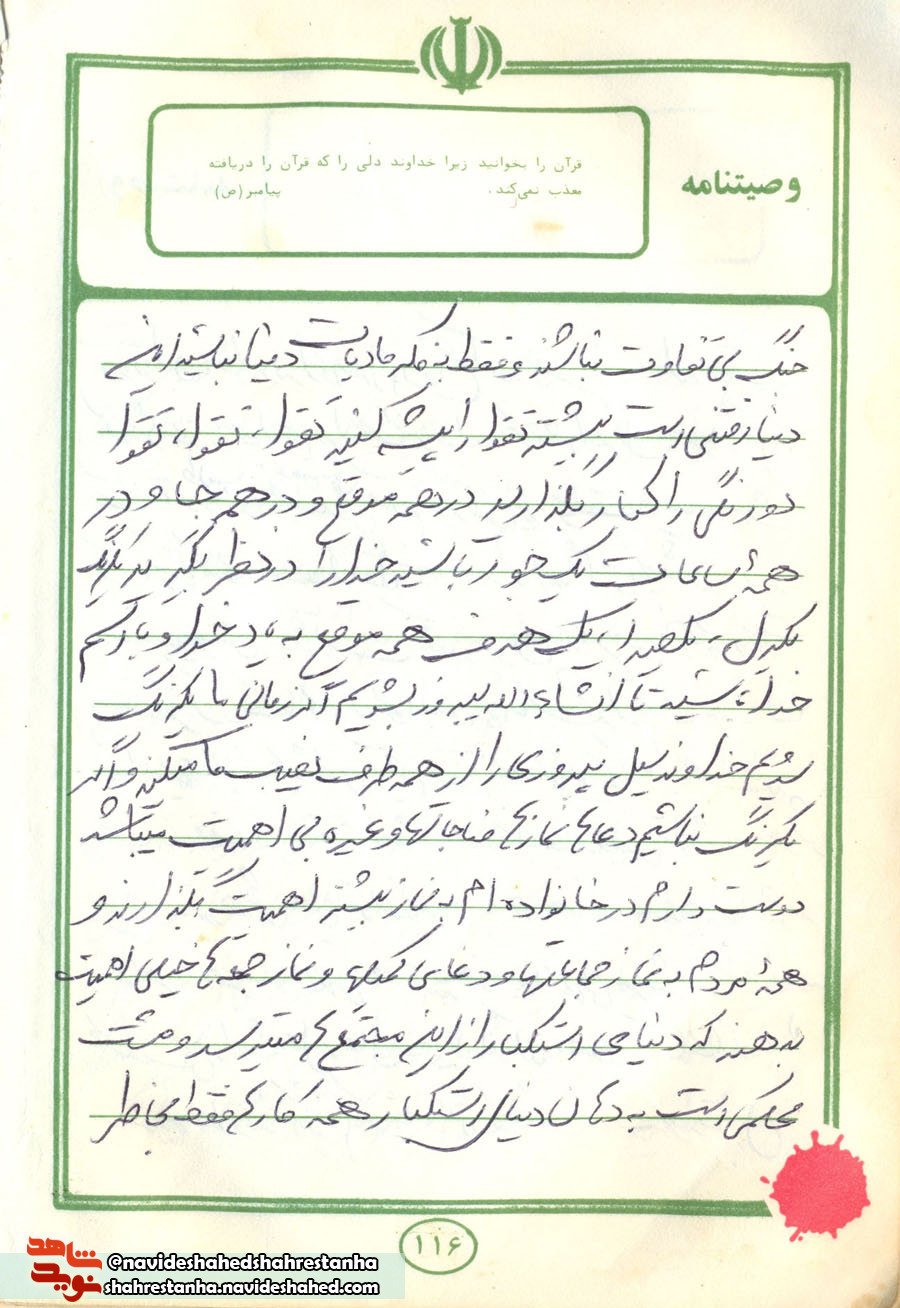 وصیتنامه
قرآن را بخوانید زیرا خداوند دلی را که قرآن را دریافته
معذب نمی‌کند. پیامبر (ص)
جنگ بی تفاوت نباشند و فقط به فکر مادیات دنیا نباشید این
دنیا رفتنی است بیشتر تقوا را پیشه کنید تقوا، تقوا، تقوا
دورنگی را کنار بگذارید در همه موقع و در همه جا و در
همهٔ ساعات یک جور باشید خدا را در نظر بگیرید یکرنگ
یکدل، یکصدا، یک هدف همه موقع به یاد خدا و با اسم
خدا باشید تا انشاءالله پیروز بشویم اگر زمانی ما یکرنگ
شویم خداوند سیل پیروزی را از همه طرف نصیب ما میکند و اگر
یکرنگ نباشیم دعاها نمازها مناجاتها و غیره بی اهمیت میباشد
دوست دارم در خانواده ام به نماز بیشتر اهمیت بگذارند و
همهٔ مردم به نماز جماعتها و دعای کمیلها و نماز جمعه ها خیلی اهمیت
بدهند که دنیای استکبار از این مجتمع ها میترسد و مشت
محکمی است به دهان دنیای استکبار همه کارها فقط بخاطر
۱۱۶
شاهد
نوید
©navideshahedshahrestanha
shahrestanha.navideshahed.com